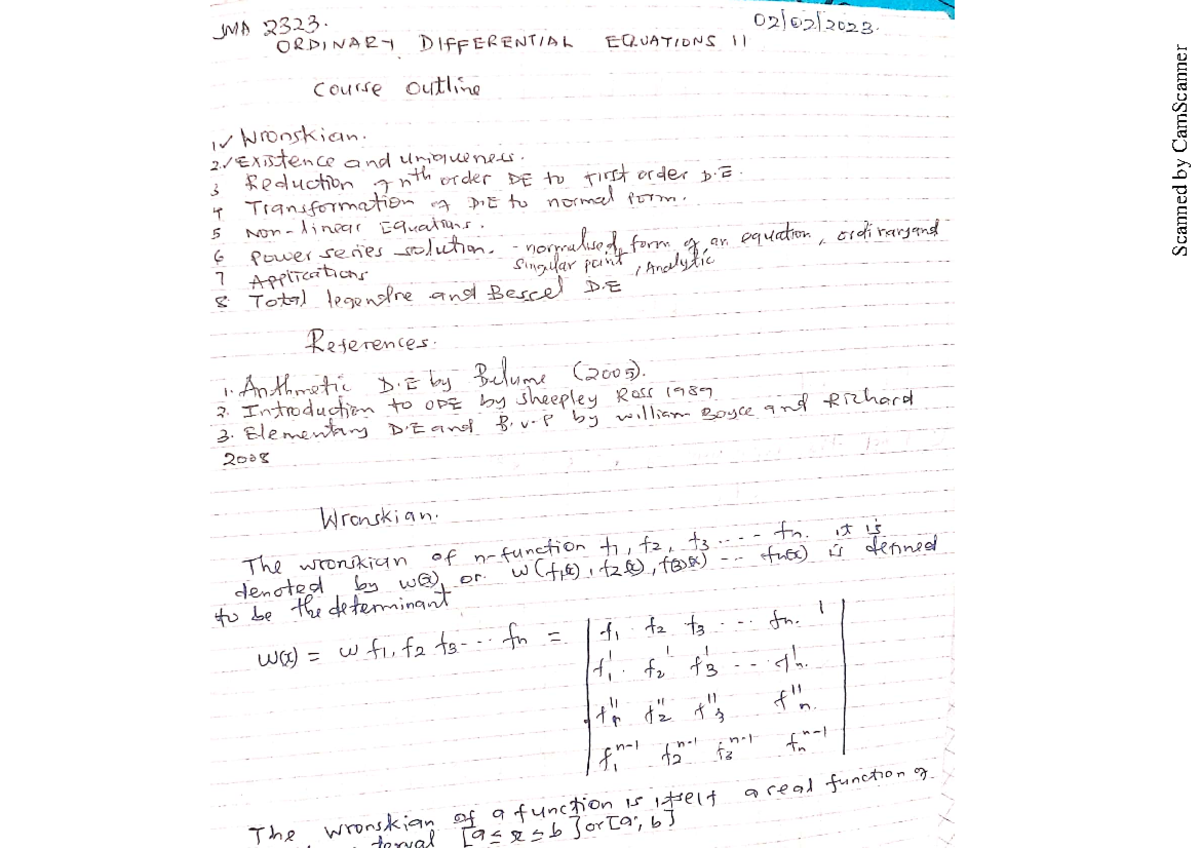 JMA 2323.
02/02/2023.
ORDINARY DIFFERENTIAL EQUATIONS II
Course Outline
1✓ Wronskian.
2.✓ Existence and uniqueness.
3 Reduction of nth order DE to first order D.E.
4 Transformation of D.E to normal form.
5 Non-linear Equations.
6 Power series solution. - normalised form of an equation, ordinary and
singular point, Analytic
7 Applications
8 Total legendre and Bessel D.E
References.
1. Arithmetic D.E by (2005).
2. Introduction to ODE by Sheepley Ross 1989
3. Elementary D.E and B.v.P by William Boyce and Richard
2008
Wronskian.
The wronskian of n-function f1, f2, f3 .... fn. it is
denoted by w(x) or w(f1(x), f2(x), f3(x) -- fn(x)) is defined
to be the determinant
w(x) = w f1, f2 f3 --- fn = | f1 f2 f3 --- fn. |
f1' f2' f3' -- fn'.
f''n f''2 f''3 f''n.
f1^n-1 f2^n-1 f3^n-1 fn^n-1
The wronskian of a function is itself a real function of
[a ≤ x ≤ b] or [a, b]
Scanned by CamScanner